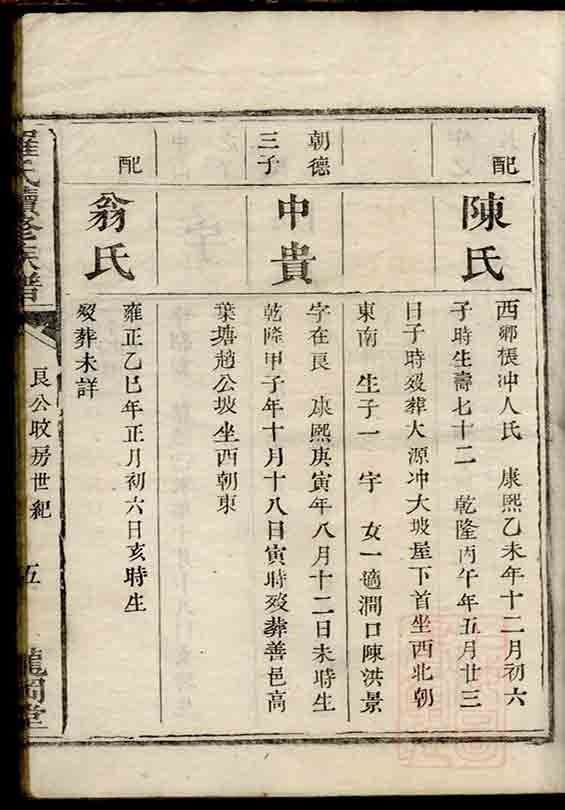 配
陳氏
西鄉棖冲人氏 康熙乙未年十二月初六
子時生壽七十二 乾隆丙午年五月廿三
日子時歿葬大源冲大坡屋下首坐西北朝
東南 生子一 字 女一適澗口陳洪景
朝德
三子
申貴
字在良 康熙庚寅年八月十二日未時生
乾隆甲子年十月十八日寅時歿葬善邑高
葉塘趙公坡坐西朝東
配
翁氏
雍正乙巳年正月初六日亥時生
歿葬未詳
羅氏續修族譜
良公政房世紀
五